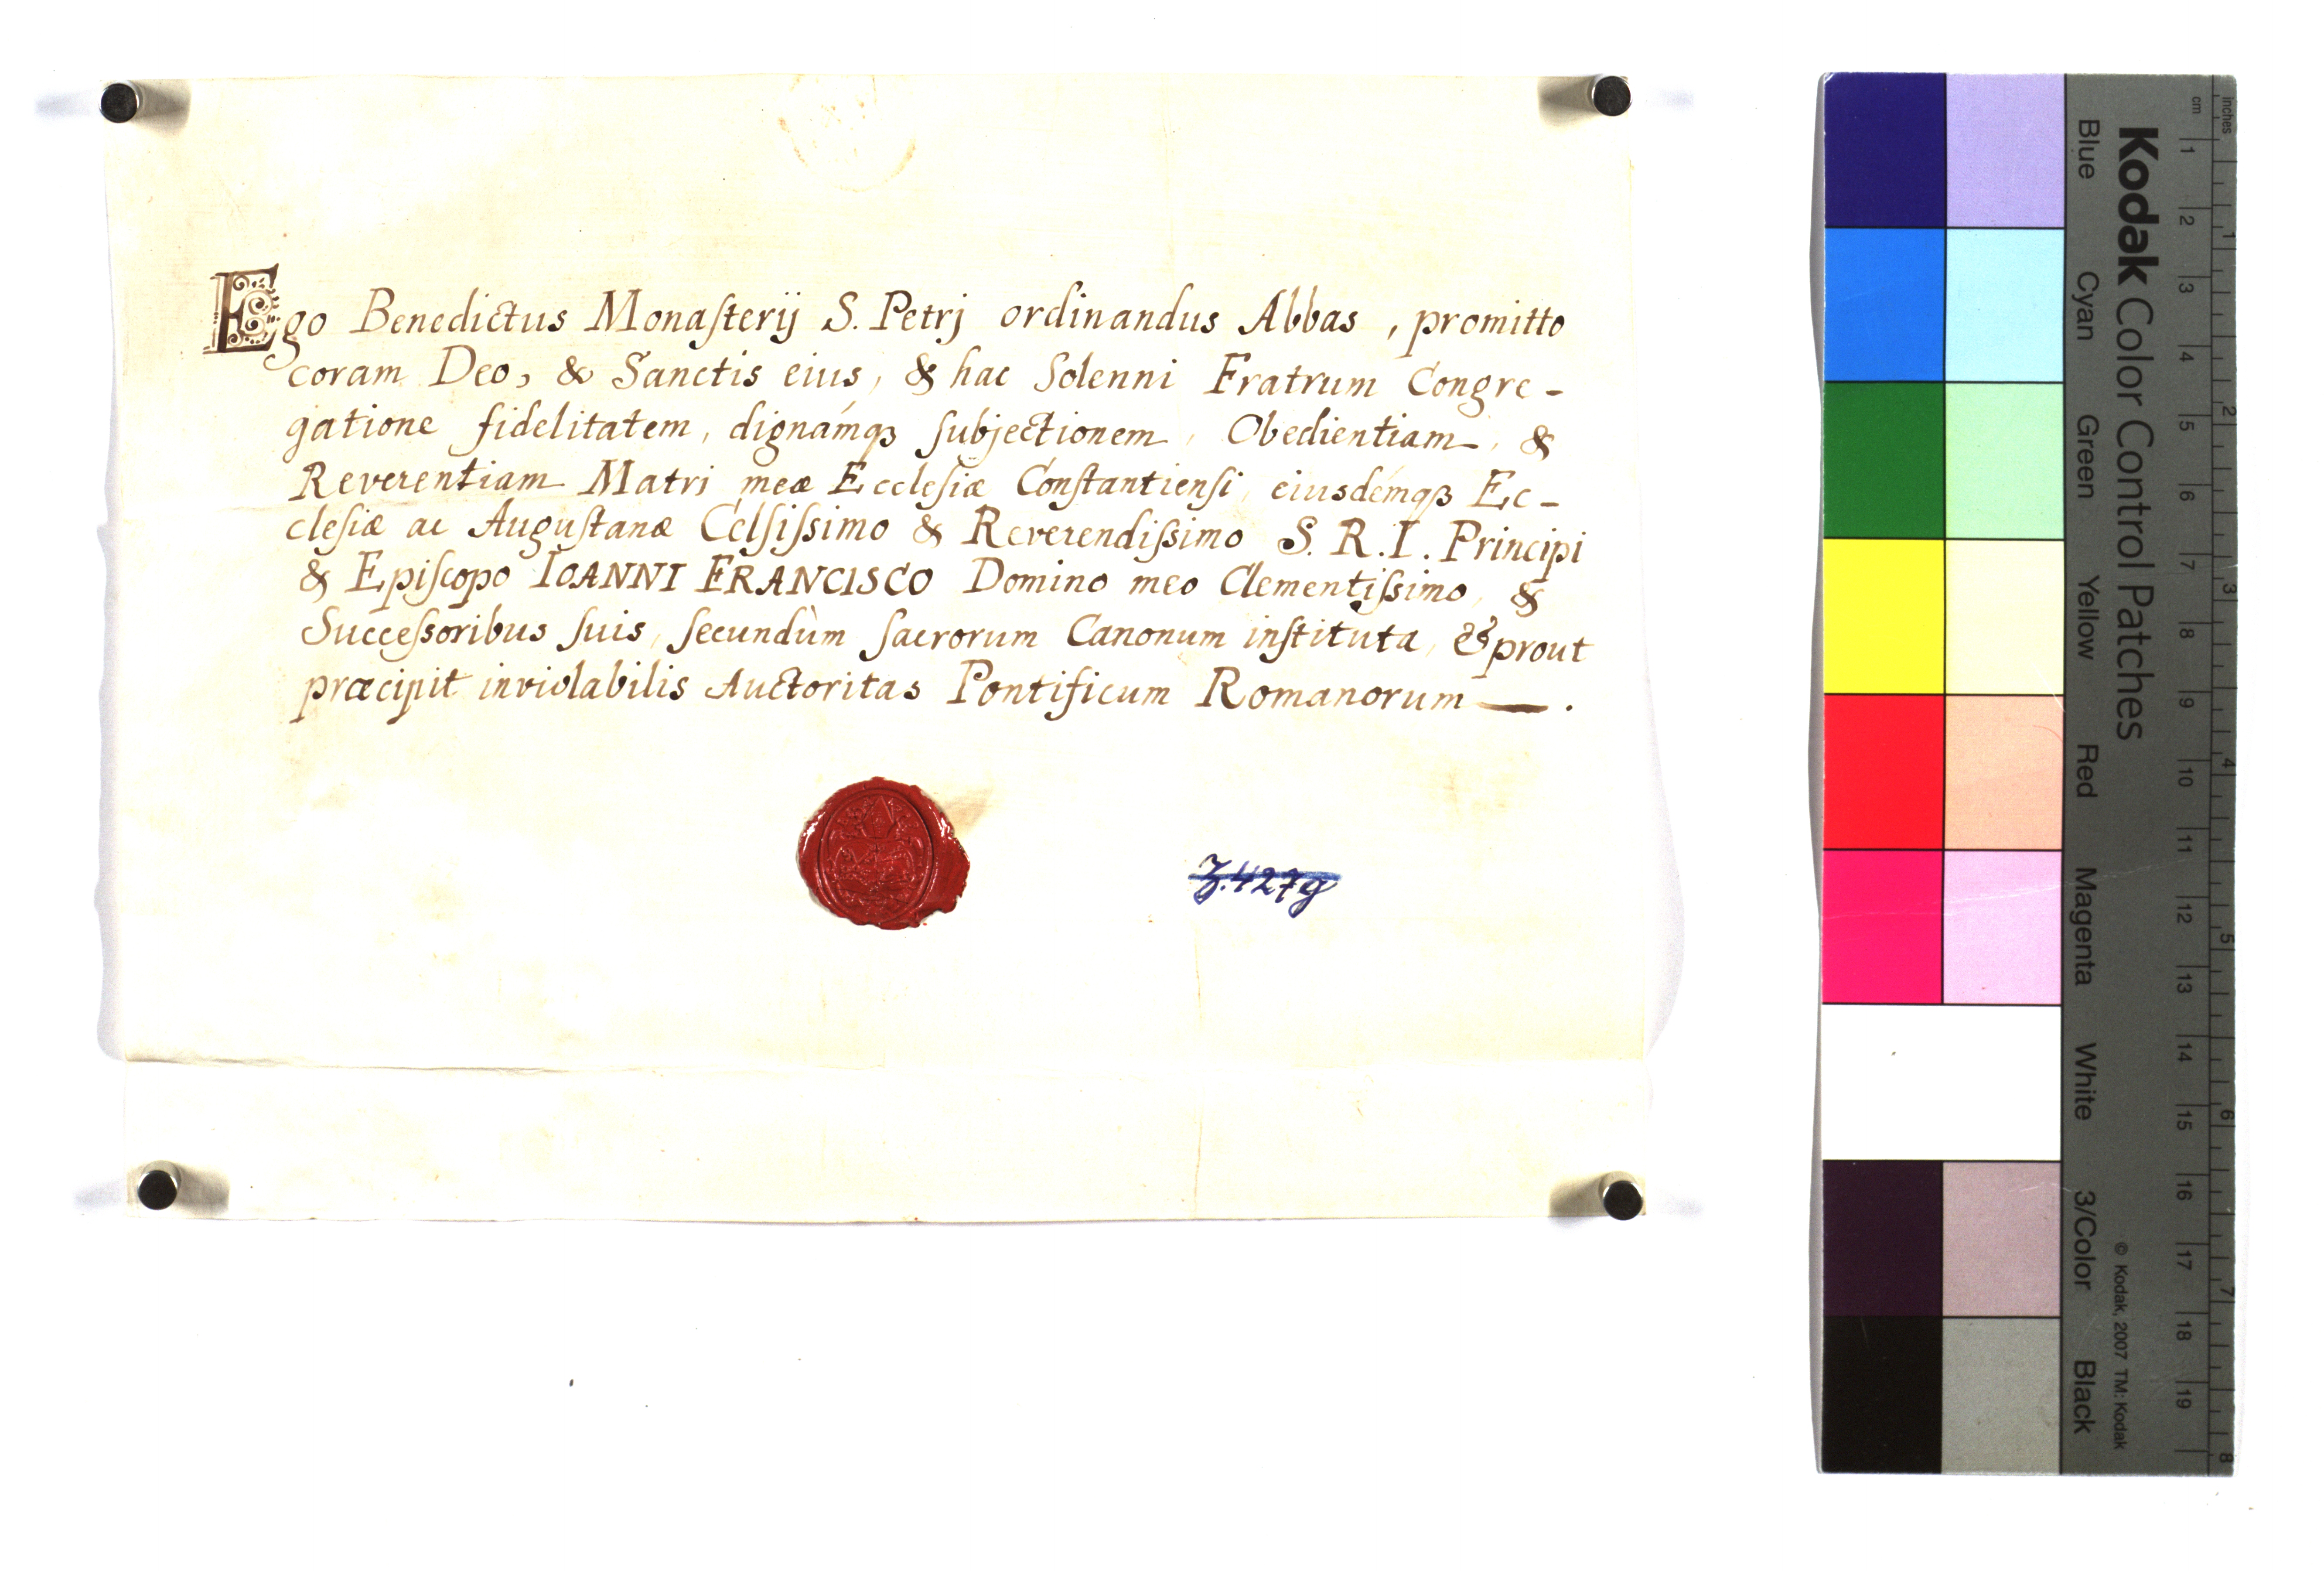 Ego Benedictus Monaſterij S. Petrj ordinandus Abbas, promitto
coram Deo, & Sanctis eius, & hac Solenni Fratrum Congre-
gatione fidelitatem, dignámqꝫ ſubjectionem, Obedientiam, &
Reverentiam Matri meæ Eccleſiæ Conſtantienſi, eiusdémqꝫ Ec-
cleſiæ ac Auguſtanæ Celſiſsimo & Reverendiſsimo S. R. I. Principi
& Epiſcopo IOANNI FRANCISCO Domino meo Clementiſsimo, &
Succeſsoribus ſuis, ſecundùm ſacrorum Canonum inſtituta, & prout
præcipit inviolabilis Auctoritas Pontificum Romanorum —.
Z.427g
Kodak Color Control Patches
Blue Cyan Green Yellow Red Magenta White 3/Color Black
© Kodak, 2007 TM: Kodak
inches 1 2 3 4 5 6 7 8
cm 1 2 3 4 5 6 7 8 9 10 11 12 13 14 15 16 17 18 19